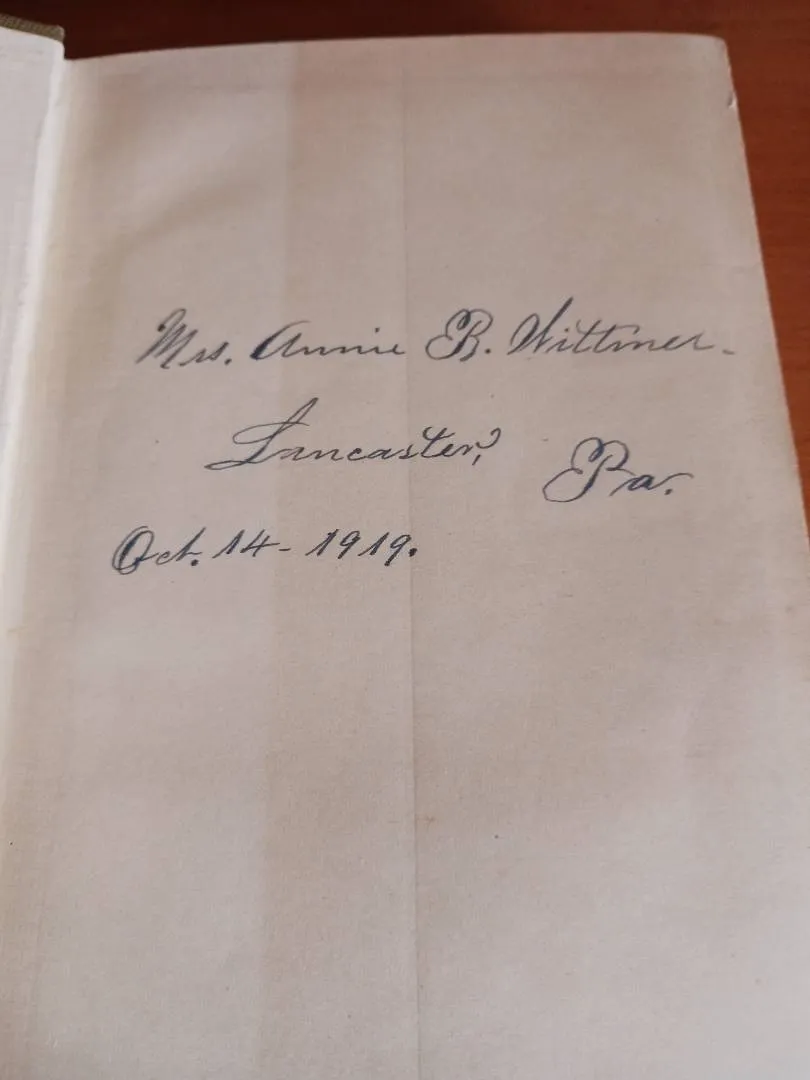 Mrs. Annie B. Wittmer.
Lancaster, Pa.
Oct. 14 - 1919.